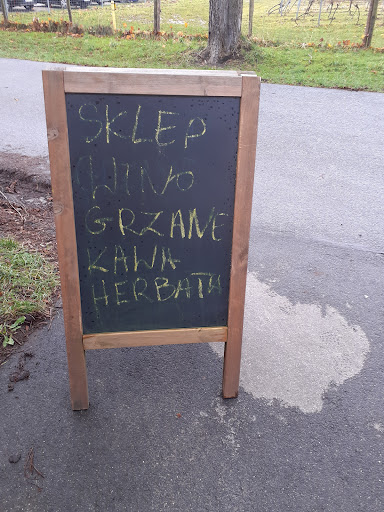 SKLEP
WINO
GRZANE
KAWA
HERBATA